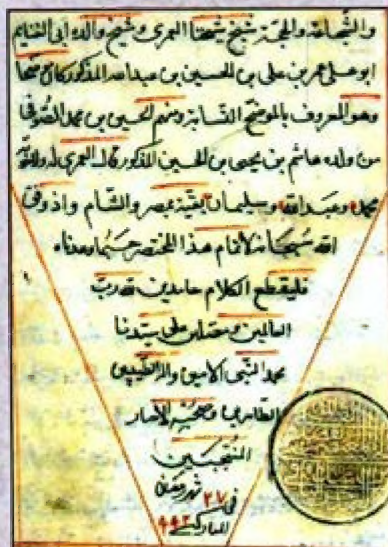 والشجاعة والحجة شيخ شيخنا العمري وشيخ والده ابي الغنايم
ابو علي عمر بن علي بن الحسين بن عبدالله المذكور كان
وهو المعروف بالموضح النسابة ومنهم الحسين بن محمد الصوفي
من ولده هاشم بن يحيى بن الحسين المذكور قال العمري له
محمد وعبدالله وسليمان بقية بمصر والشام واذ وفق
الله سبحانه لاتمام هذا المختصر حسبما وعدناه
فليقطع الكلام حامدين لله رب
العالمين ومصلين على سيدنا
محمد النبي الامين واله الطيبين
الطاهرين وصحبه الاخيار
المنتجبين
في ٢٧ شهر رمضان
المبارك ٩٩٣